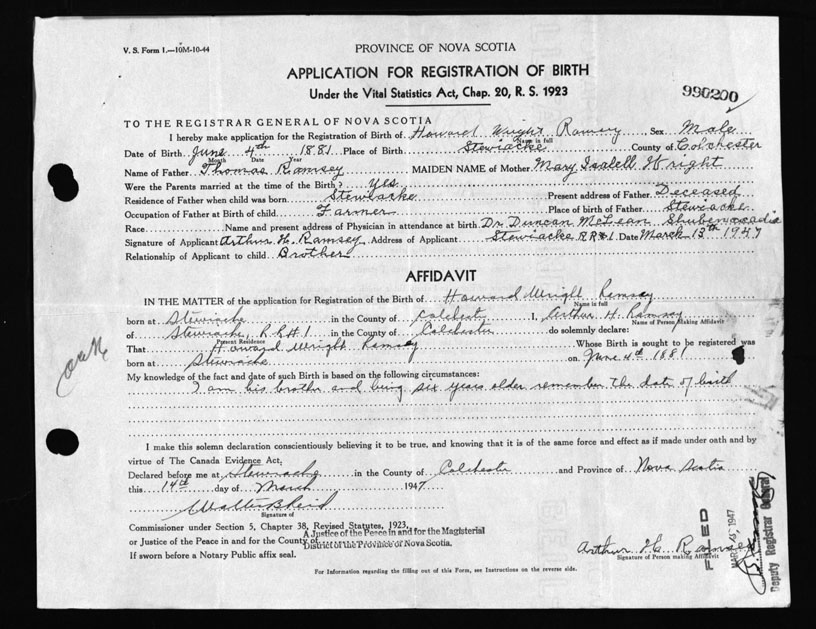 V. S. Form 1.—10M-10-44
PROVINCE OF NOVA SCOTIA
APPLICATION FOR REGISTRATION OF BIRTH
Under the Vital Statistics Act, Chap. 20, R. S. 1923
990200
TO THE REGISTRAR GENERAL OF NOVA SCOTIA
I hereby make application for the Registration of Birth of Howard Wright Ramsey Sex Male
Name in full
Date of Birth June 4th 1881 Place of Birth Stewiacke County of Colchester
Month Date Year
Name of Father Thomas Ramsey MAIDEN NAME of Mother Mary Isabell Wright
Were the Parents married at the time of the Birth? Yes
Residence of Father when child was born Stewiacke Present address of Father Deceased
Occupation of Father at Birth of child Farmer Place of birth of Father Stewiacke
Race Name and present address of Physician in attendance at birth Dr Duncan McLean Shubenacadie
Signature of Applicant Arthur H. Ramsey Address of Applicant Stewiacke RR#1 Date March 13th 1947
Relationship of Applicant to child Brother
AFFIDAVIT
IN THE MATTER of the application for Registration of the Birth of Howard Wright Ramsey
Name in full
born at Stewiacke in the County of Colchest I, Arthur H. Ramsey
Name of Person Making Affidavit
of Stewiacke, RR#1 in the County of Colchester do solemnly declare:
Present Residence
That Howard Wright Ramsey Whose Birth is sought to be registered was
born at Stewiacke on June 4th 1881
My knowledge of the fact and date of such Birth is based on the following circumstances:
I am his brother and being six years older remember the date of birth
I make this solemn declaration conscientiously believing it to be true, and knowing that it is of the same force and effect as if made under oath and by
virtue of The Canada Evidence Act.
Declared before me at Stewiacke in the County of Colchester and Province of Nova Scotia
this 14th day of March 1947
Signature of
Commissioner under Section 5, Chapter 38, Revised Statutes, 1923,
or Justice of the Peace in and for the County of
A Justice of the Peace in and for the Magisterial
District of the Province of Nova Scotia.
If sworn before a Notary Public affix seal.
Arthur H. Ramsey
Signature of Person making Affidavit
FILED
1947
Deputy Registrar General
For Information regarding the filling out of this Form, see Instructions on the reverse side.